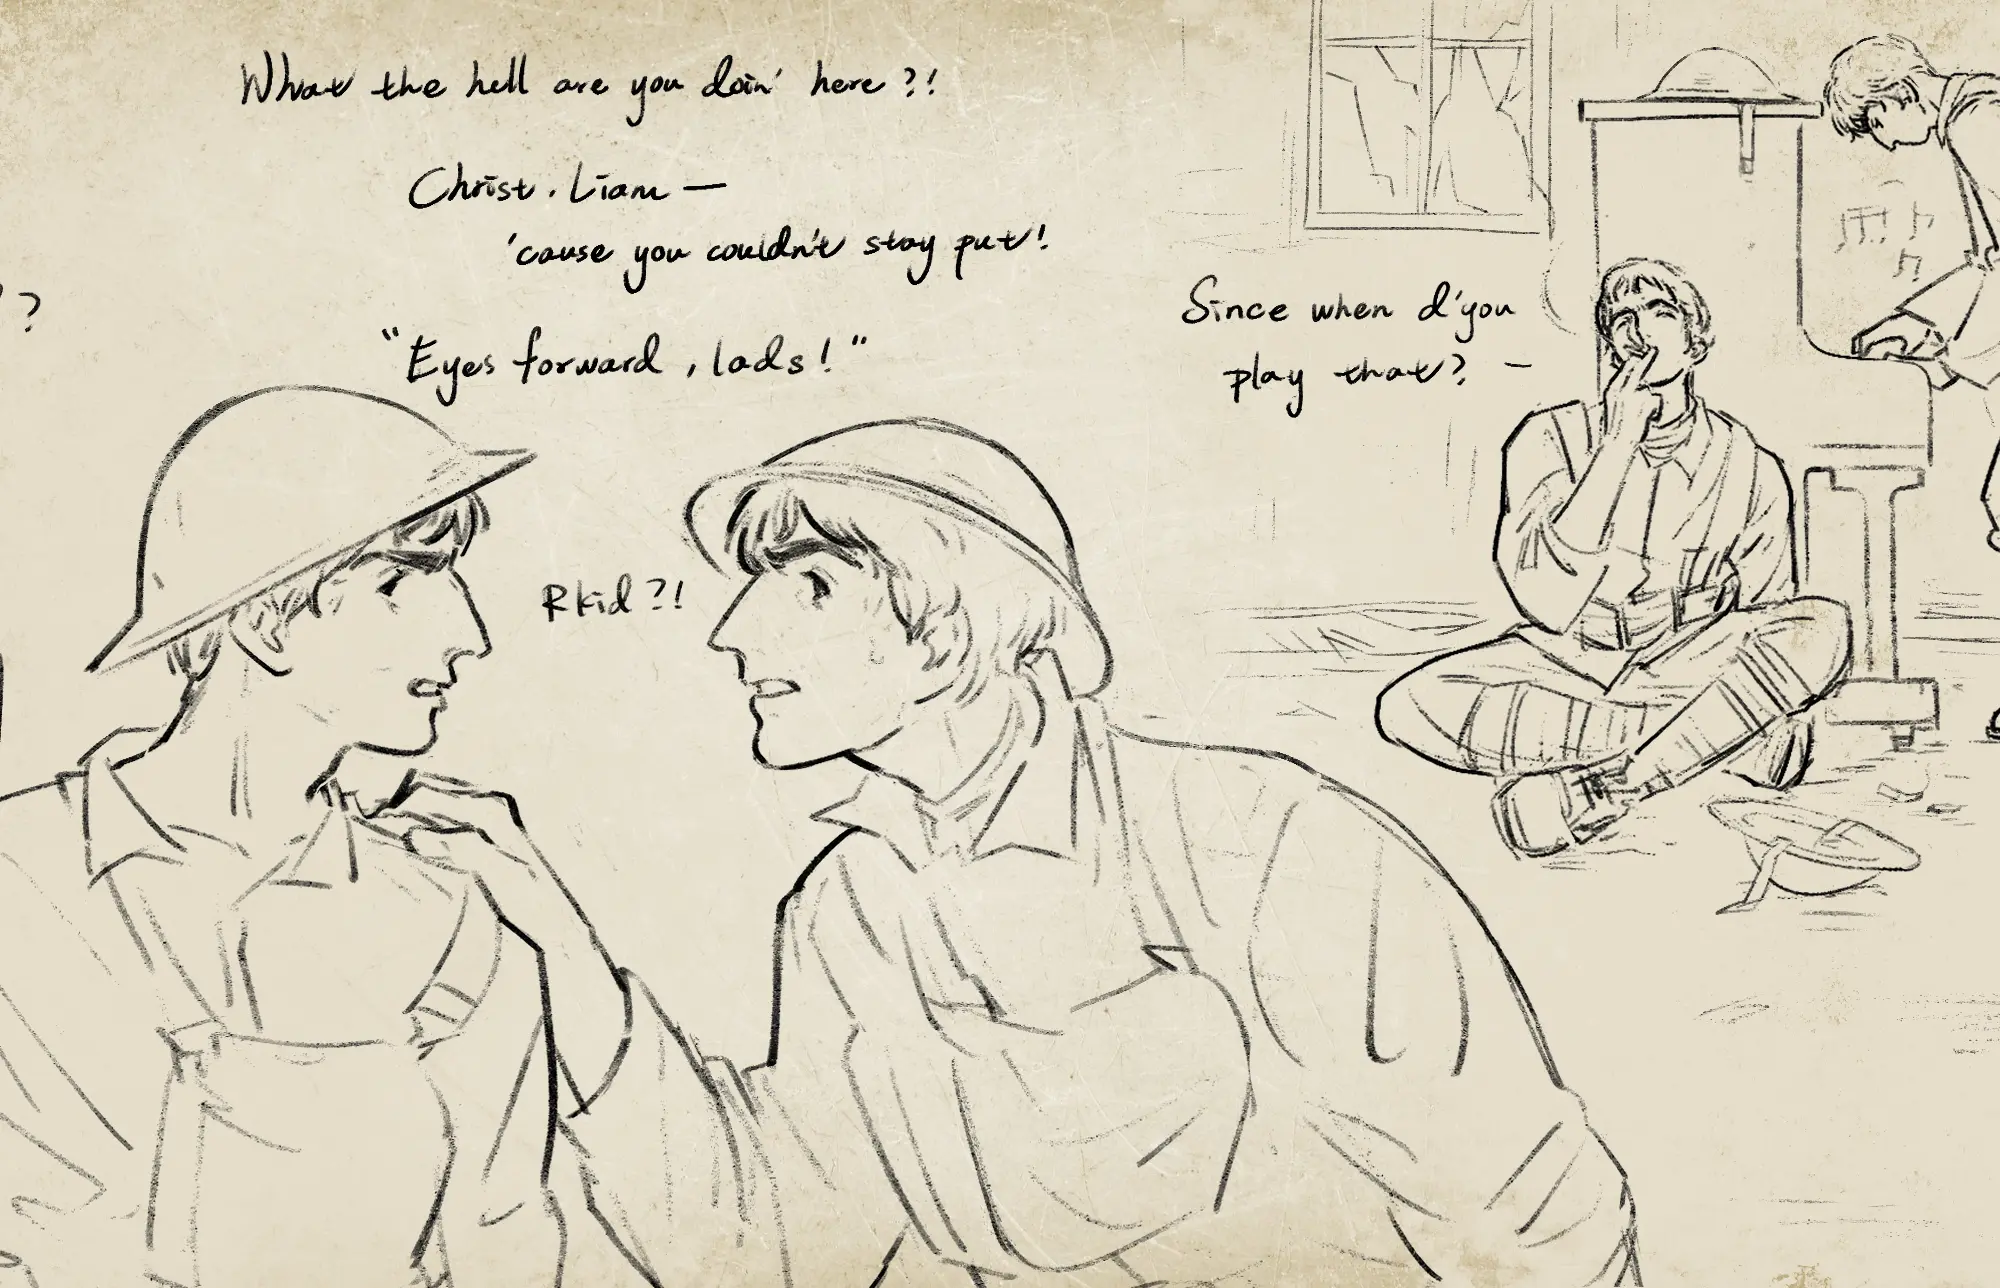 What the hell are you doin' here?!
Christ. Liam —
'cause you couldn't stay put!
"Eyes forward, lads!"
?
Rkid?!
Since when d'you
play that? —